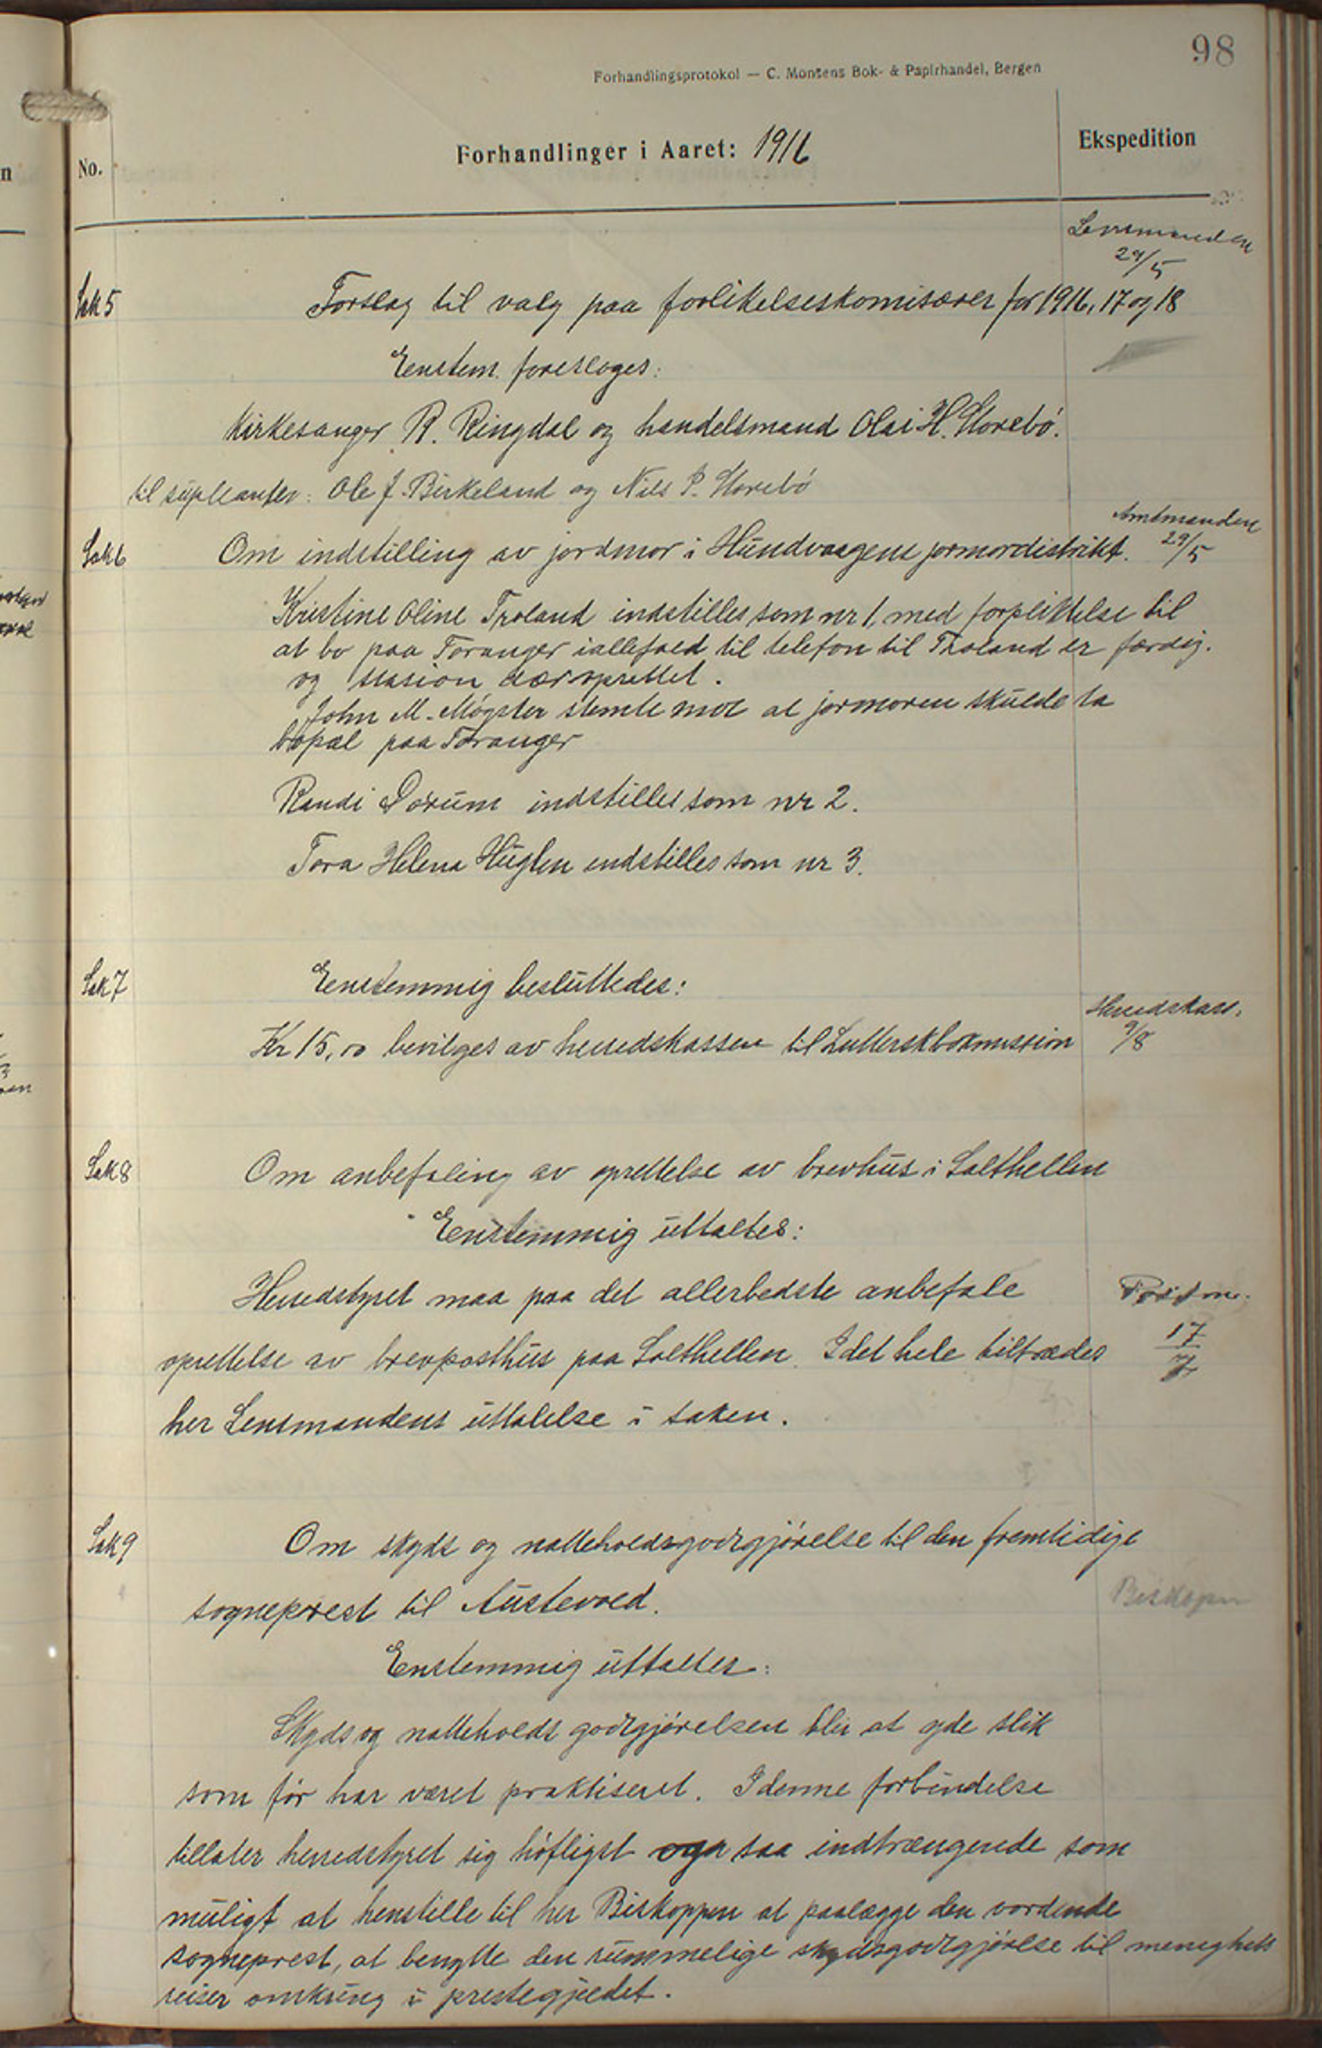 98
Forhandlingsprotokol — C. Monsens Bok- & Papirhandel, Bergen
No.
Forhandlinger i Aaret: 1916
Ekspedition
Lensmanden
29/5
Sak 5
Forslag til valg paa forlikelseskomisærer for 1916, 17 og 18
Enstem. foresloges:
Kirkesanger R. Ringdal og handelsmand Olai H. Storebö.
til supleanter: Ole J. Birkeland og Nils P. Storebö
Amtmanden
29/5
Sak 6
Om indstilling av jordmor i Hundvaagens jormordistrikt.
Kristine Oline Troland indstilles som nr 1, med forpliktelse til
at bo paa Toranger iallefald til telefon til Troland er færdig.
og stasion der oprettet.
John M. Møgster stemte mot at jormoren skulde ta
bopæl paa Toranger
Randi Dorum indstilles som nr 2.
Tora Helena Huglen indstilles som nr 3.
Sak 7
Eenstemmig besluttedes:
Kr 15,00 bevilges av herredskassen til Lutherskbokmission
Herredskass.
9/8
Sak 8
Om anbefaling av oprettelse av brevhus i Salthellen
Eenstemmig uttaltes:
Herredstyret maa paa det allerbedste anbefale
oprettelse av brevposthus paa Salthellen. I det hele tiltrædes
her Lensmandens uttalelse i saken.
Postme.
17
7
Sak 9
Om skyds og natteholdsgodtgjörelse til den fremtidige
sogneprest til Austevold.
Biskopen
Enstemmig uttaltes:
Skyds og natteholds godtgjörelsen blir at yde slik
som før har været praktiseret. I denne forbindelse
tillater herredstyret sig höfligst saa indtrængende som
muligt at henstille til her Biskoppen at paalægge den vordende
sogneprest, at benytte den rummelige skydsgodtgjörelse til menighets
reiser omkring i prestegjeldet.